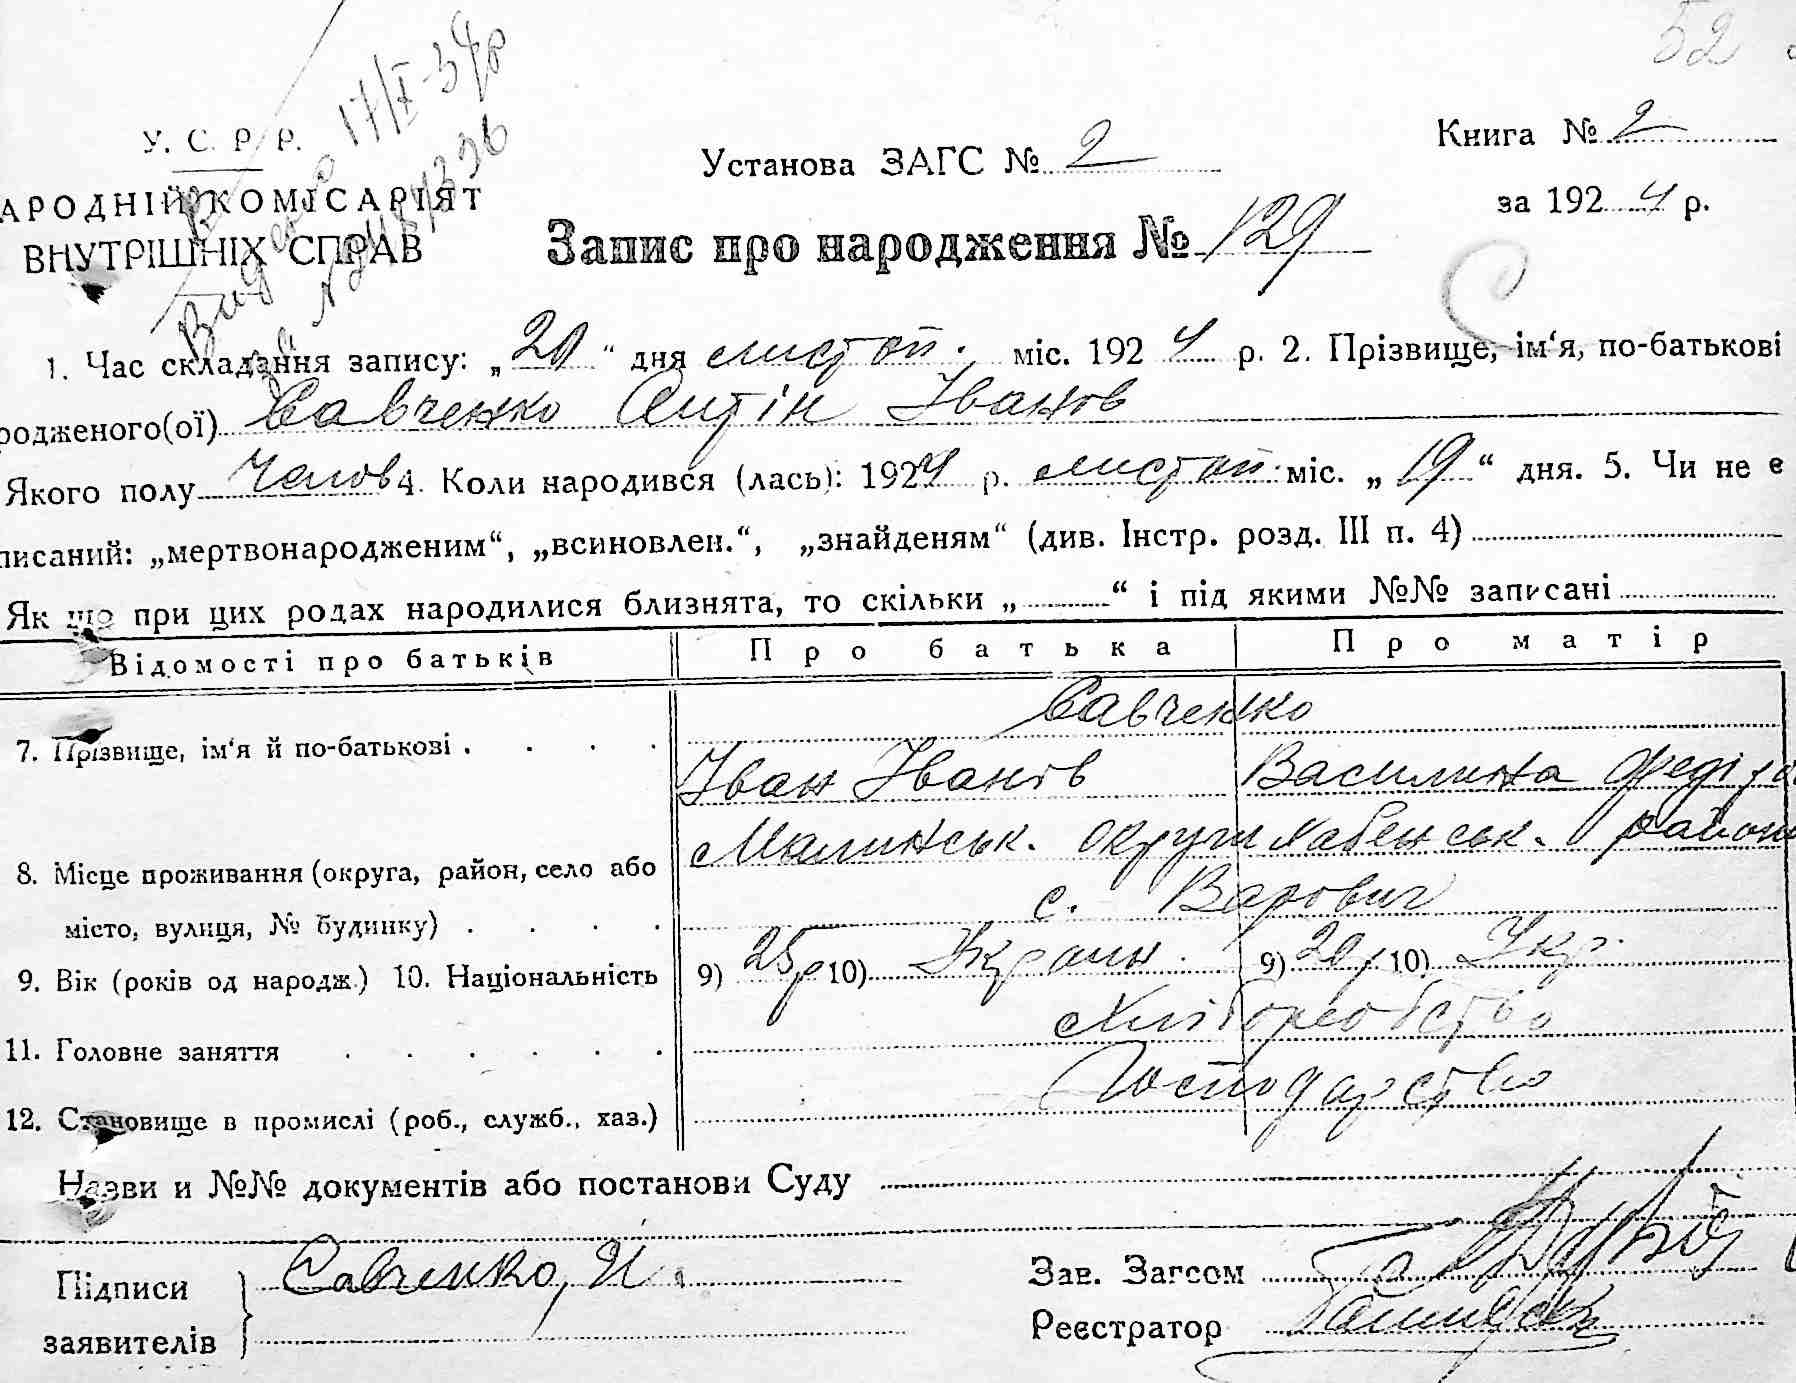 52
У. С. Р. Р.
АРОДНІЙ КОМІСАРІЯТ
ВНУТРІШНІХ СПРАВ
17/X-39р
Установа ЗАГС № 2
Книга № 2
за 1924 р.
Запис про народження № 129
1. Час складання запису: „20“ дня листоп. міс. 1924 р. 2. Прізвище, ім‘я, по-батькові
родженого(ої) Савченко Антін Іванов
Якого полу Чолов 4. Коли народився (лась): 1924 р. листоп. міс. „19“ дня. 5. Чи не є
писаний: „мертвонародженим“, „всиновлен.“, „знайденям“ (див. Інстр. розд. III п. 4)
Як що при цих родах народилися близнята, то скільки „ “ і під якими №№ записані
Відомості про батьків Про батька Про матір
Савченко
7. Прізвище, ім‘я й по-батькові . . . . Іван Іванів Василина Федіров
Малинськ. округи Хабенськ. район
8. Місце проживання (округа, район, село або
місто, вулиця, № будинку) . . . . с. Варович
9. Вік (років од народж.) 10. Національність 9) 25р 10) Україн. 9) 20р 10) Укр.
11. Головне заняття . . . . . . Хліборобство
12. Становище в промислі (роб., служб., хаз.) Господарство
Назви и №№ документів або постанови Суду
Підписи Савченко, И.
заявителів
Зав. Загсом
Реєстратор